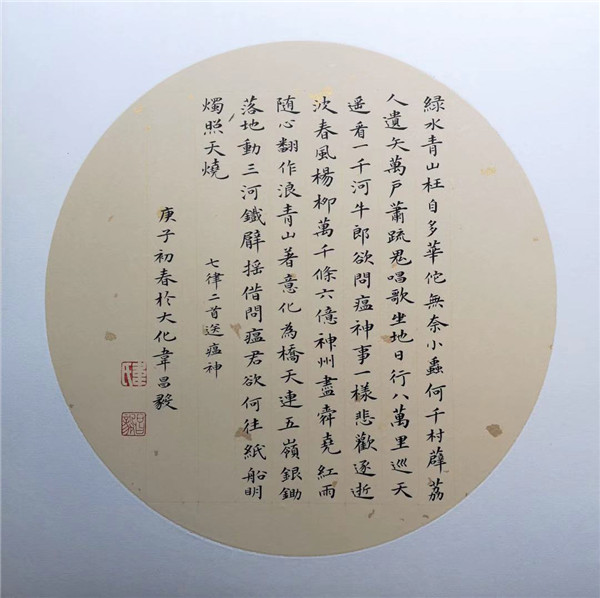 綠水青山枉自多華佗無奈小蟲何千村薜荔
人遺矢萬戶蕭疏鬼唱歌坐地日行八萬里巡天
遥看一千河牛郎欲問瘟神事一樣悲歡逐逝
波春風楊柳萬千條六億神州盡舜堯紅雨
随心翻作浪青山著意化為橋天連五嶺銀鋤
落地動三河鐵臂摇借問瘟君欲何往紙船明
燭照天燒
七律二首送瘟神
庚子初春於大化韋昌毅